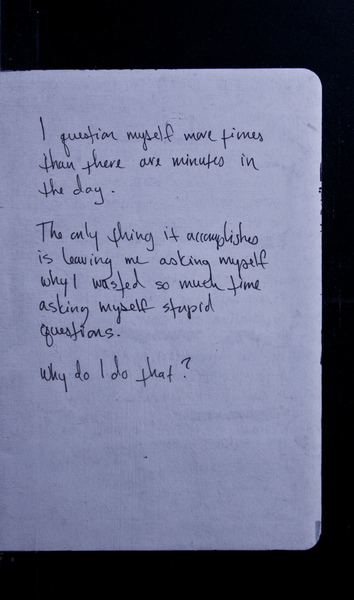 I question myself more times
than there are minutes in
the day.
The only thing it accomplishes
is leaving me asking myself
why I wasted so much time
asking myself stupid
questions.
Why do I do that?